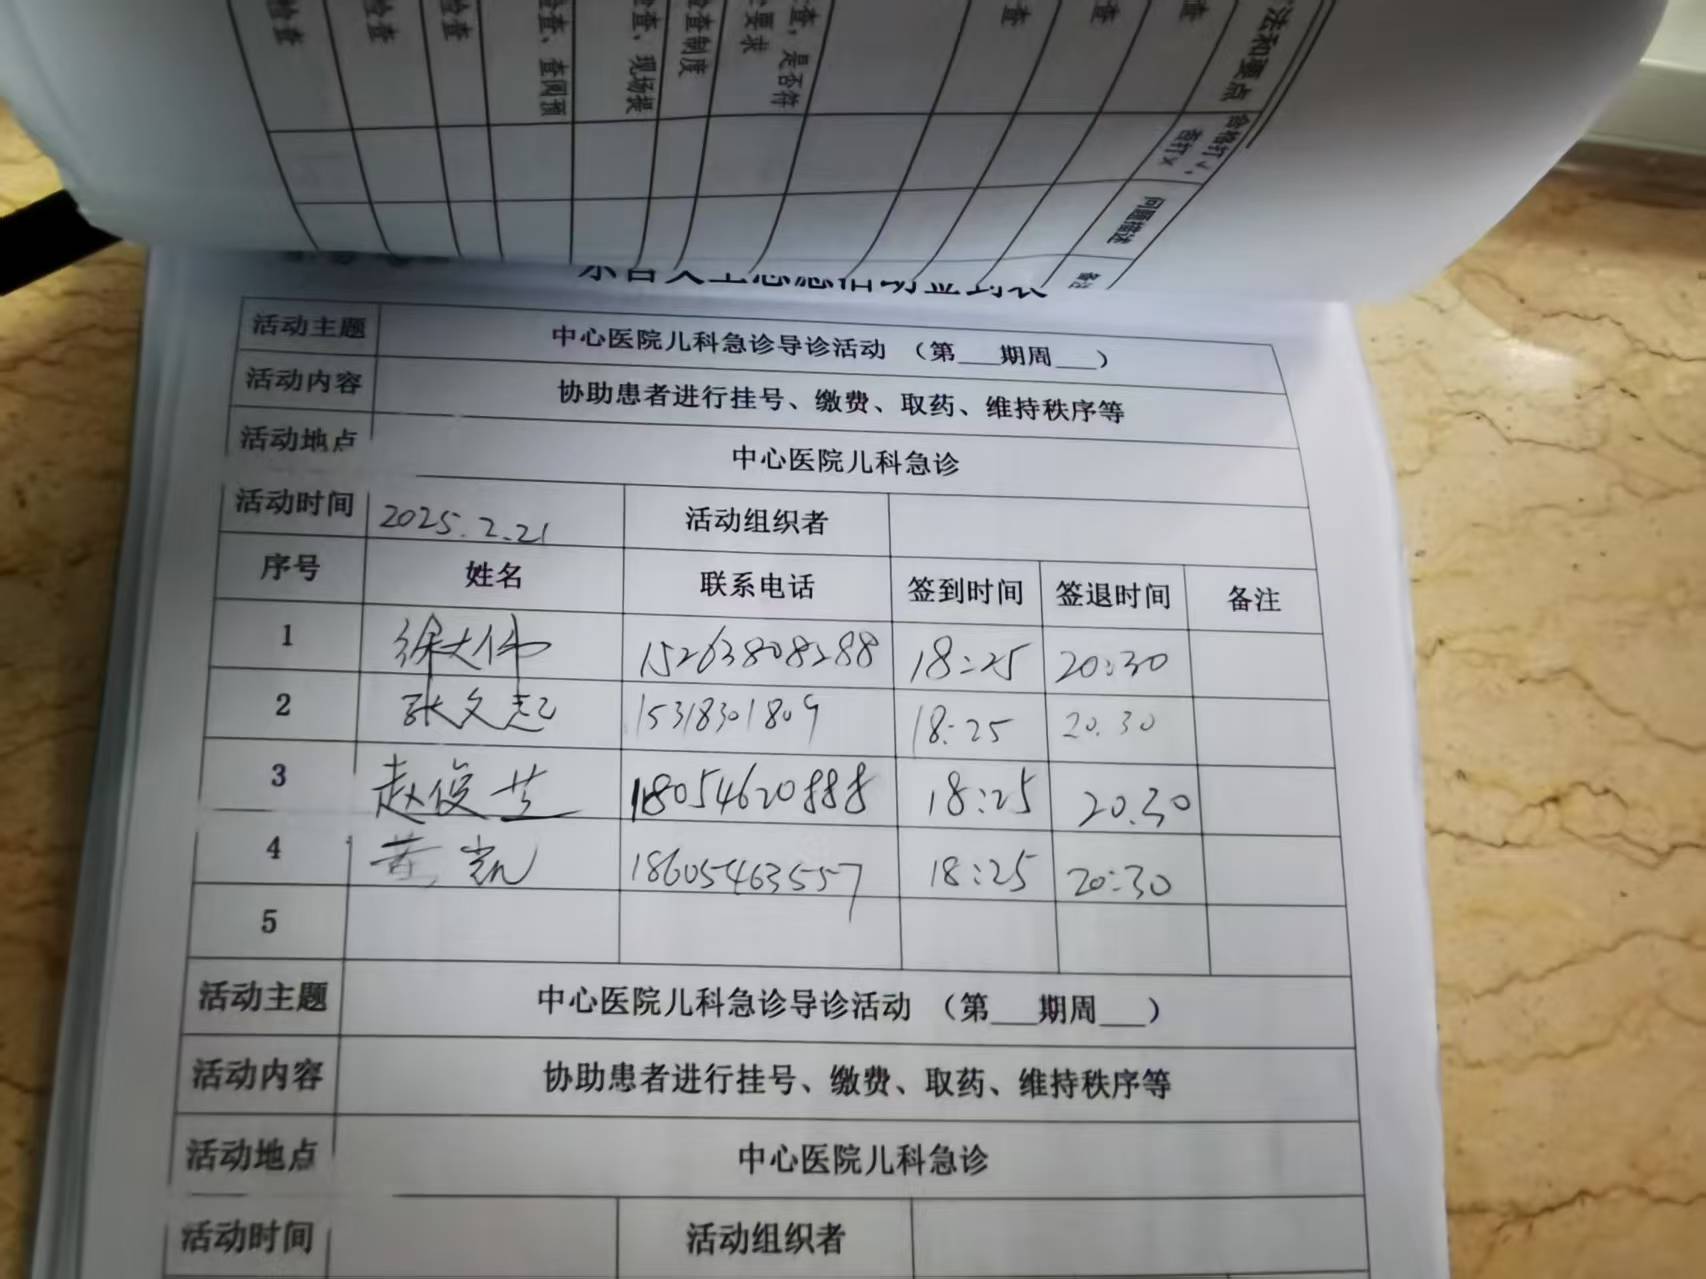 检查
检查
检查
检查、查阅预
检查、现场提
检查制度
查，是否符
要求
查
查
法和要点
合格打√，
否打×
问题描述
备注
活动主题 中心医院儿科急诊导诊活动 （第___期周___）
活动内容 协助患者进行挂号、缴费、取药、维持秩序等
活动地点 中心医院儿科急诊
活动时间 2025.2.21 活动组织者
序号 姓名 联系电话 签到时间 签退时间 备注
1 徐大伟 15263808288 18:25 20:30
2 张文起 15318301809 18:25 20.30
3 赵俊芝 18054620888 18:25 20.30
4 黄凯 18605463557 18:25 20:30
5
活动主题 中心医院儿科急诊导诊活动 （第___期周___）
活动内容 协助患者进行挂号、缴费、取药、维持秩序等
活动地点 中心医院儿科急诊
活动时间 活动组织者